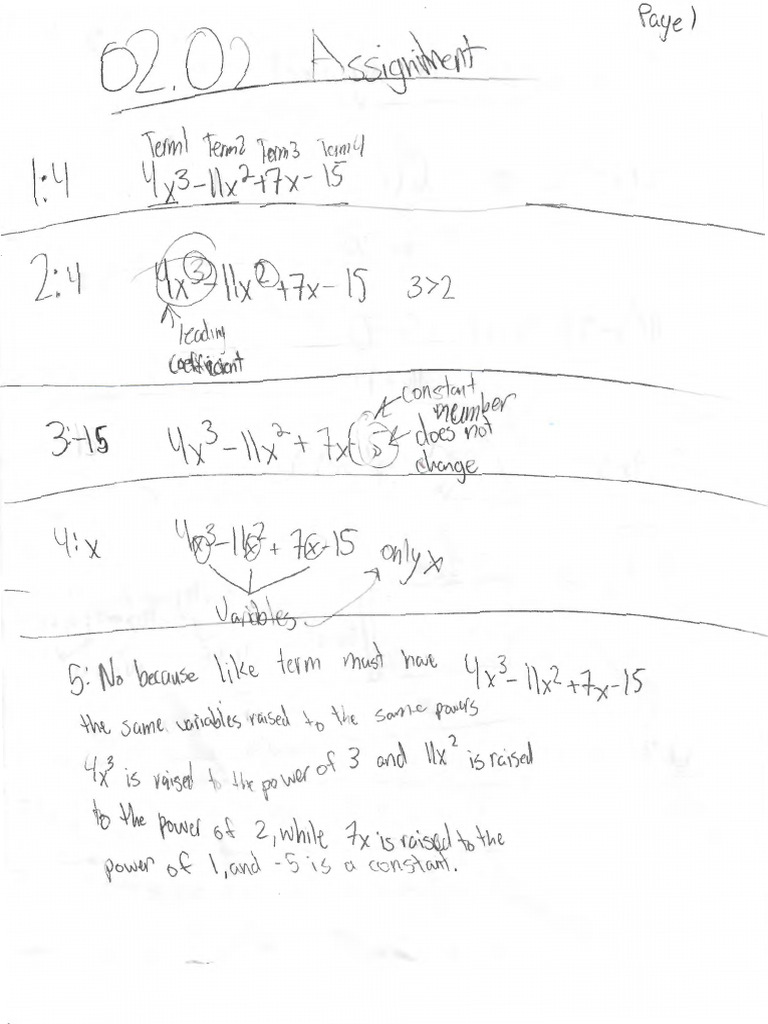 Page 1
02.02 Assignment
Term1 Term2 Term3 Term4
1:4 4x³-11x²+7x-15
2:4 4x³-11x²+7x-15 3>2
leading
coefficient
constant
number
3:-15 4x³-11x²+7x-15 does not
change
4:x 4x³-11x²+7x-15 only x
Variables
5: No because like term must have 4x³-11x²+7x-15
the same variables raised to the same powers
4x³ is raised to the power of 3 and 11x² is raised
to the power of 2, while 7x is raised to the
power of 1, and -5 is a constant.